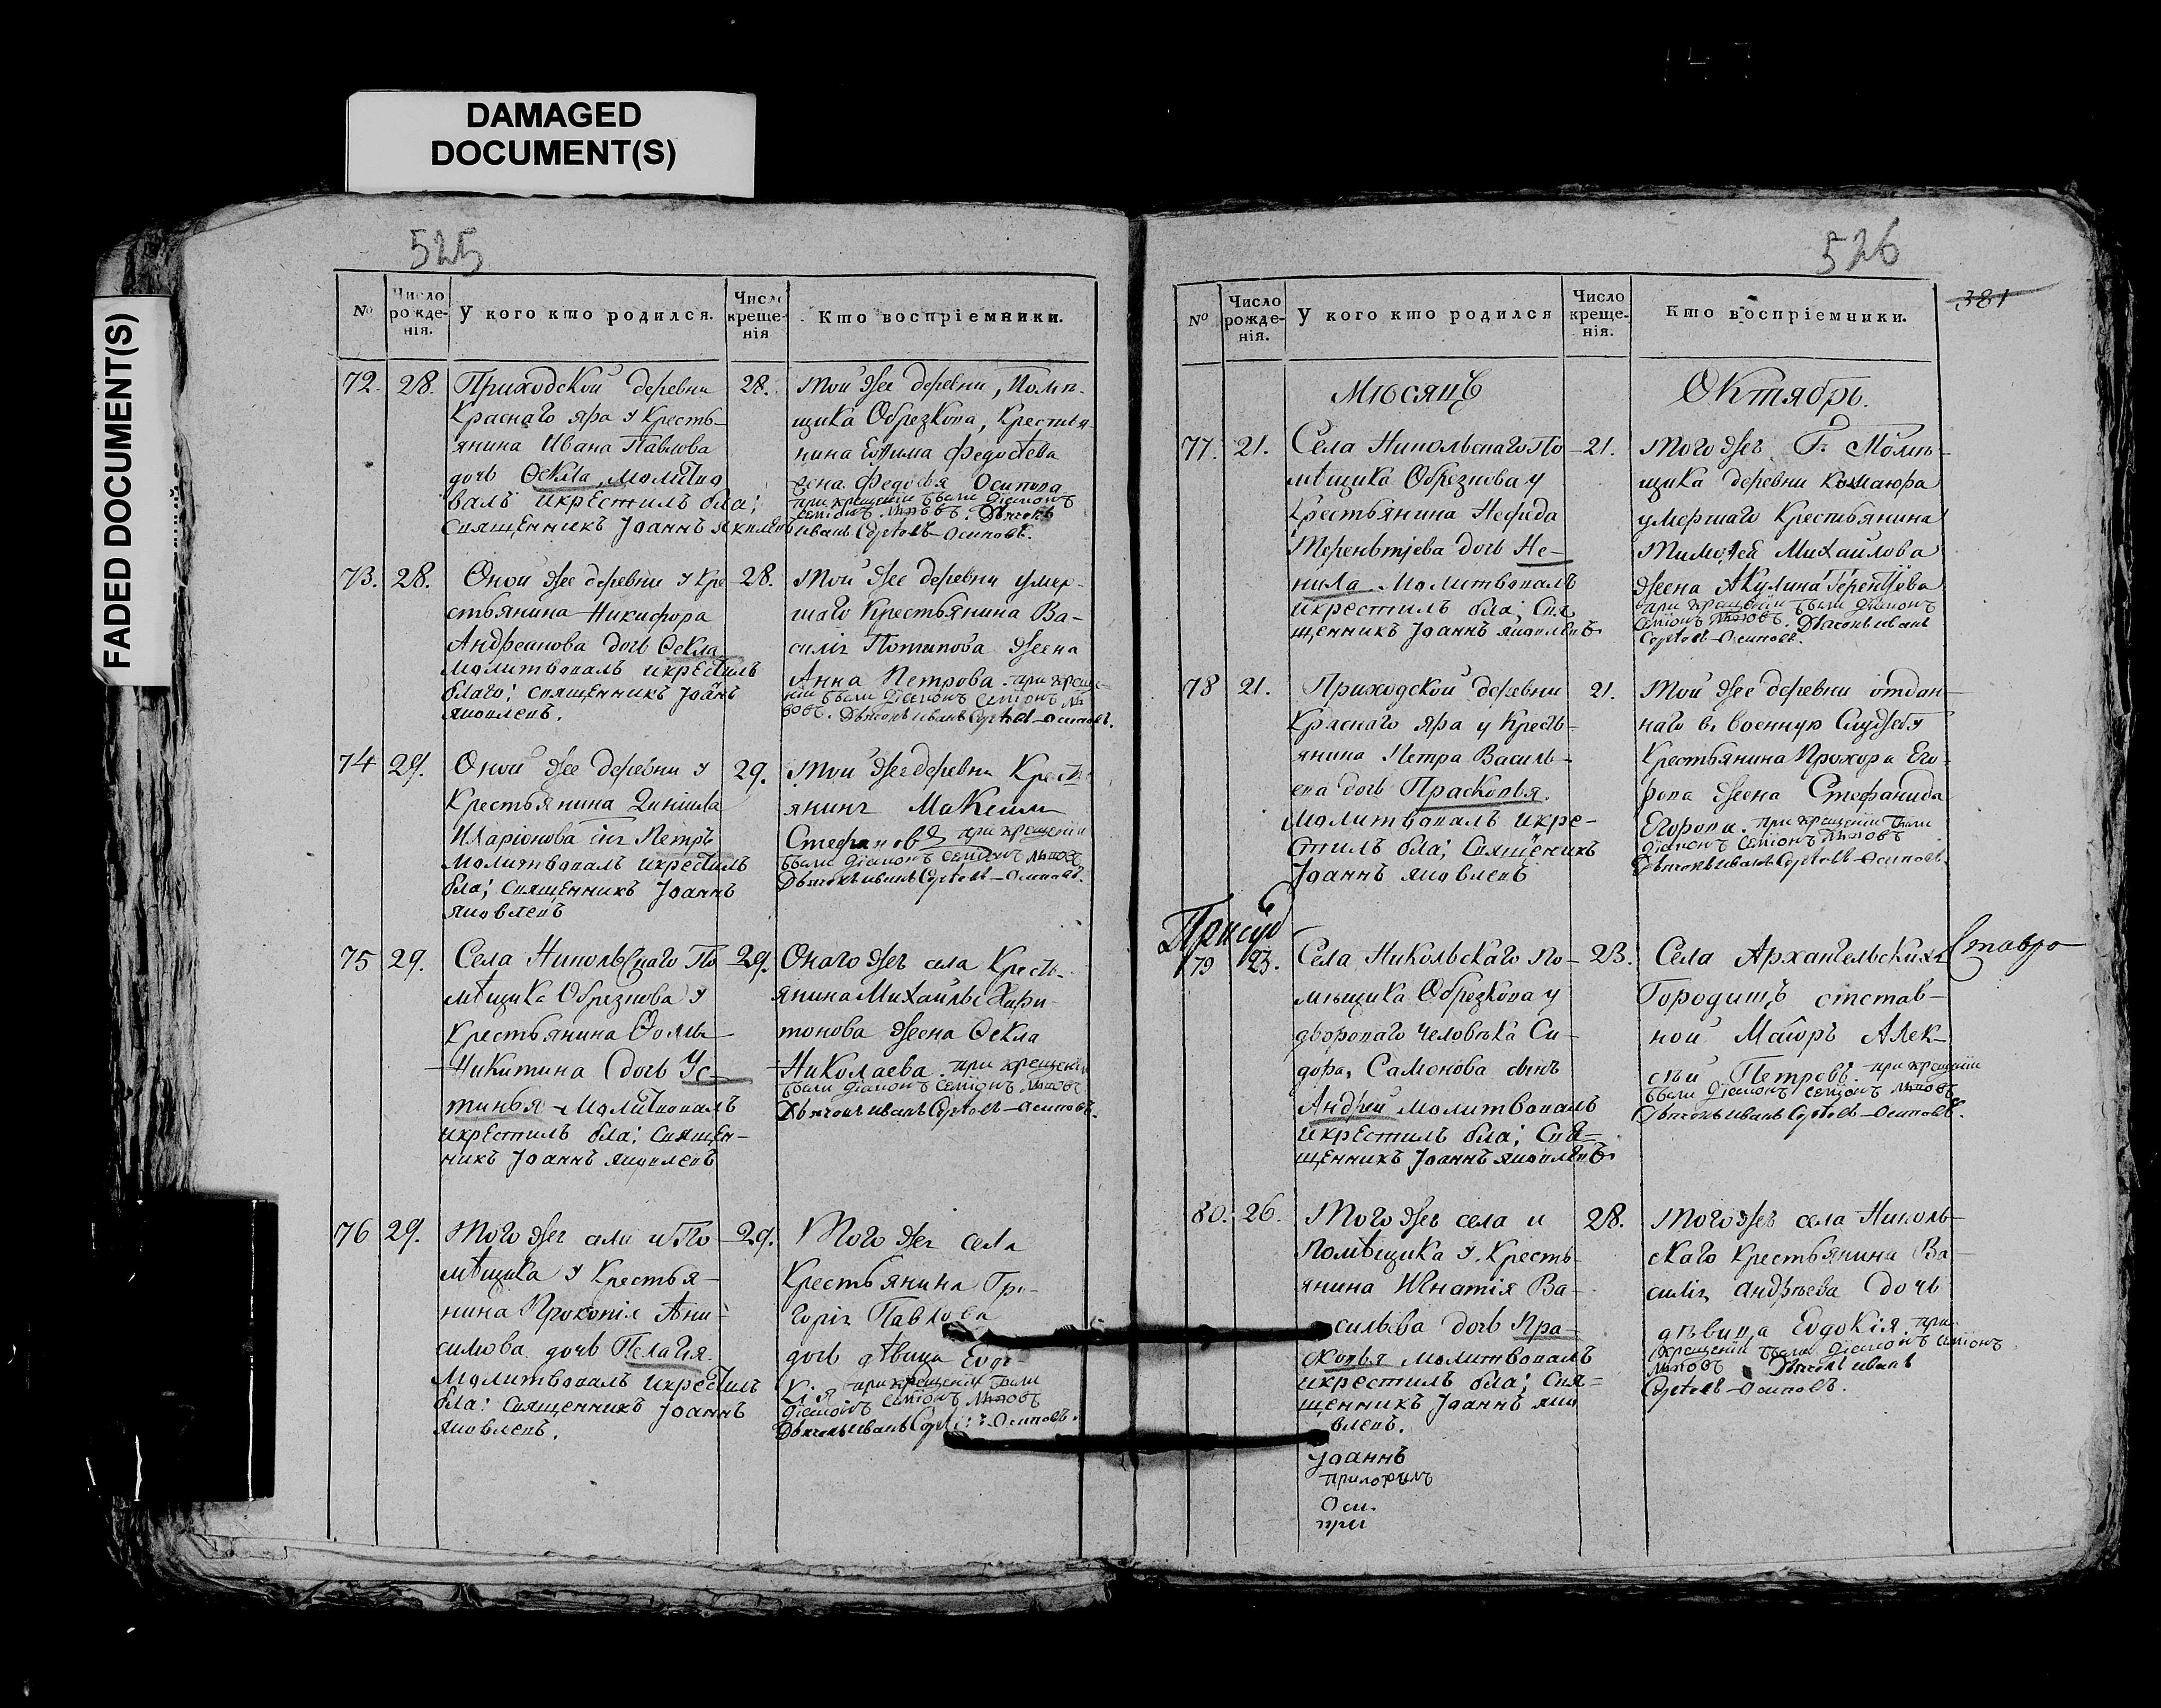 DAMAGED
DOCUMENT(S)
FADED DOCUMENT(S)
525
№ Число рожденія. У кого кто родился. Число крещенія Кто воспріемники.
72. 28. Приходской деревни
Краснаго яра у Кресть-
янина Ивана Павлова
дочь Ѳекла, молитво
валъ икрестилъ бла;
священникъ Іоаннъ Яковлевъ
28. той же деревни, Помѣ-
щика Обрезкова, Крестья-
нина Ефима Федотева
жена Федосья Осипова
при крещеніи были діаконъ
Семіонъ Дьячокъ
иванъ Осиповъ.
73. 28. Оной же деревни у Кре
стьянина Никифора
Андреанова дочь Ѳекла
Молитвовалъ икрестилъ
благо; священникъ Іоаннъ
яковлевъ.
28. той же деревни умер-
шаго Крестьянина Ва-
силія Потапова жена
Анна Петрова. при креще-
ніи были діаконъ Семіонъ
Дьячокъ иванъ Осиповъ.
74 29. Оной же деревни у
Крестьянина
Иларіонова сынъ Петръ
Молитвовалъ икрестилъ
бла; священникъ Іоаннъ
яковлевъ
29. той же деревни Кресть
янинъ Максим
Стефановъ при крещеніи
были діаконъ Семіонъ
Дьячокъ иванъ Осиповъ.
75 29. Села Никольскаго По
мѣщика Обрезкова у
Крестьянина Ѳомы
Никитина дочь Ус-
тинья Молитвовалъ
икрестилъ бла; священ-
никъ Іоаннъ яковлевъ
29. Онаго же села Кресть-
янина Михайлы Хари-
тонова жена Ѳекла
Николаева. при крещеніи
были діаконъ Семіонъ
Дьячокъ иванъ Осиповъ.
76 29. Того же села и По
мѣщика у Крестья-
нина Прокопія Ани-
симова дочь Пелагія.
Молитвовалъ икрестилъ
бла; священникъ Іоаннъ
яковлевъ.
29. Того же села
Крестьянина Гри-
горія Павлова
дочь дѣвица Евдо-
кія при крещеніи были
діаконъ Семіонъ
Дьячокъ иванъ Осиповъ.
526
381
№ Число рожденія. У кого кто родился Число крещенія. Кто воспріемники.
Мѣсяцъ Октябрь.
77. 21. Села Никольскаго По
мѣщика Обрезкова у
Крестьянина Нефеда
Терентіева дочь Не-
нила Молитвовалъ
икрестилъ бла; Свя
щенникъ Іоаннъ яковлевъ
21. того же Г: Помѣ-
щика деревни
умершаго Крестьянина
Тимофея Михайлова
жена Акулина Терентіева
при крещеніи были діаконъ
Семіонъ Дьячокъ иванъ
Осиповъ.
78 21. Приходской деревни
Краснаго яра у Кресть-
янина Петра Василь-
ева дочь Прасковья.
Молитвовалъ икре-
стилъ бла; Священникъ
Іоаннъ яковлевъ
21. Той же деревни отдан-
наго въ военную Службу
Крестьянина Прохора Его-
рова жена Стефанида
Егорова. при крещеніи были
діаконъ Семіонъ
Дьячокъ иванъ Осиповъ.
79 23. Села Никольскаго По-
мѣщика Обрезкова у
двороваго человѣка Си-
дора Самонова сынъ
Андрей Молитвовалъ
икрестилъ бла; Свя-
щенникъ Іоаннъ яковлевъ.
23. Села Архангельскихъ
Городищъ отстав-
ной Маіоръ Алек-
сѣй Петровъ. при крещеніи
были діаконъ Семіонъ
Дьячокъ иванъ Осиповъ.
80. 26. Того же села и
Помѣщика у Кресть-
янина Игнатія Ва-
сильева дочь Пра-
сковья Молитвовалъ
икрестилъ бла; Свя-
щенникъ Іоаннъ яко
влевъ.
Іоаннъ
при
28. Того же села Николь-
скаго Крестьянина Ва-
силія Андрѣева дочь
дѣвица Евдокія при
крещеніи были діаконъ Семіонъ
Дьячокъ иванъ
Осиповъ.